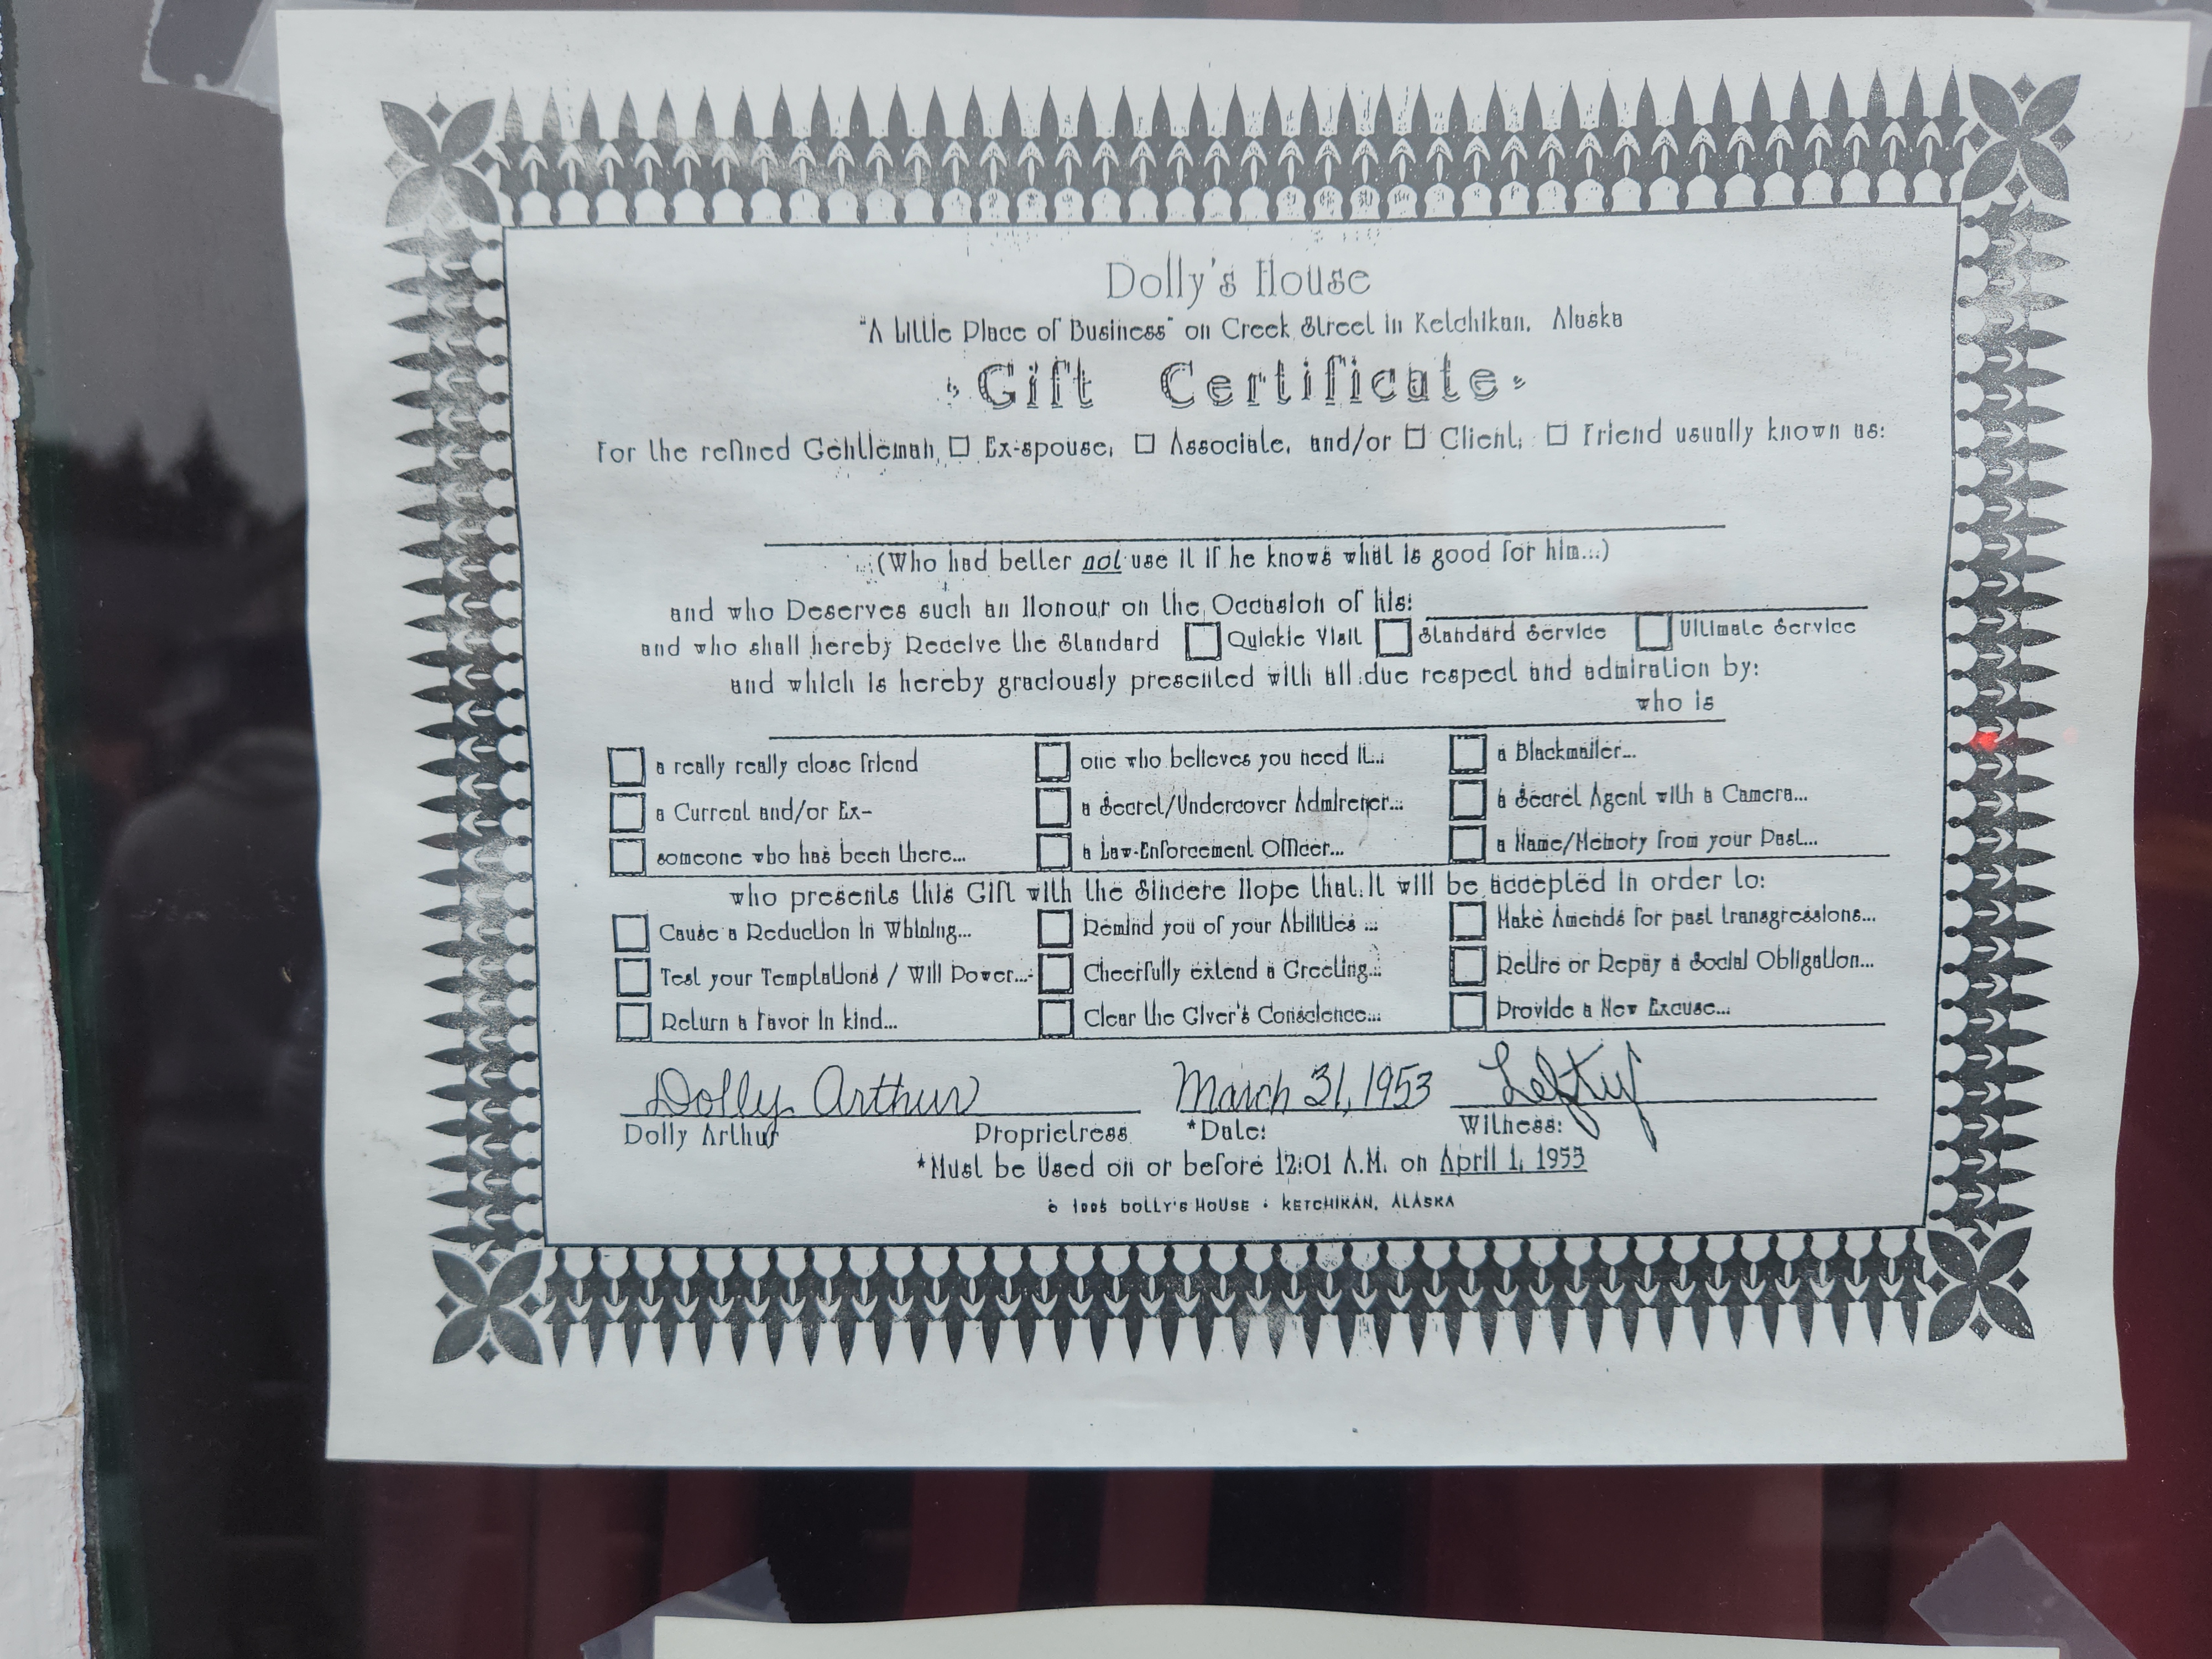 Dolly's House
"A Little Place of Business" on Creek Street in Ketchikan, Alaska
Gift Certificate
For the refined Gentleman, □ Ex-spouse, □ Associate, and/or □ Client, □ Friend usually known as:
(Who had better not use it if he knows what is good for him...)
and who Deserves such an Honour on the Occasion of his:
and who shall hereby Receive the Standard □ Quickie Visit □ Standard Service □ Ultimate Service
and which is hereby graciously presented with all due respect and admiration by:
who is
□ a really really close friend □ one who believes you need it... □ a Blackmailer...
□ a Current and/or Ex- □ a Secret/Undercover Admirerer... □ a Secret Agent with a Camera...
□ someone who has been there... □ a Law-Enforcement Officer... □ a Name/Memory from your Past...
who presents this Gift with the Sincere Hope that it will be accepted in order to:
□ Cause a Reduction in Whining... □ Remind you of your Abilities ... □ Make Amends for past transgressions...
□ Test your Temptations / Will Power... □ Cheerfully extend a Greeting... □ Retire or Repay a Social Obligation...
□ Return a Favor in kind... □ Clear the Giver's Conscience... □ Provide a New Excuse...
Dolly Arthur March 31, 1953 Lefty
Dolly Arthur Proprietress *Date: Witness:
*Must be Used on or before 12:01 A.M. on April 1, 1953
© 1995 DOLLY'S HOUSE • KETCHIKAN, ALASKA